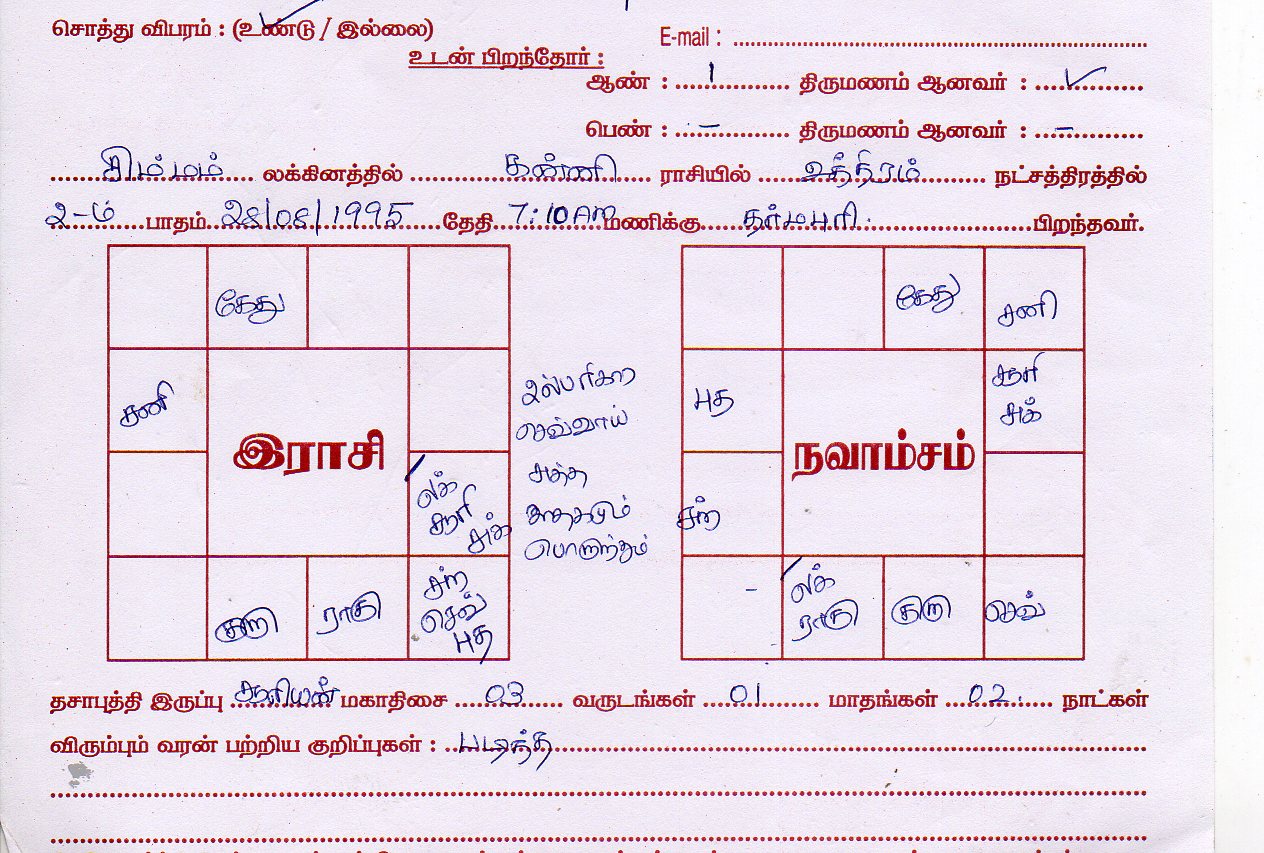 சொத்து விபரம் : (உண்டு / இல்லை)
E-mail :
உடன் பிறந்தோர் :
ஆண் : 1 திருமணம் ஆனவர் : ✓
பெண் : – திருமணம் ஆனவர் : –
சிம்மம் லக்கினத்தில் கன்னி ராசியில் உத்திரம் நட்சத்திரத்தில்
2-ம் பாதம் 28/08/1995 தேதி 7:10 AM மணிக்கு தர்மபுரி. பிறந்தவர்.
கேது
சனி
இராசி
லக்
சூரி
சுக்
குரு
ராகு
சந்
செவ்
புத
செவ்வாய்
சுத்த
பொருந்தும்
கேது
சனி
புத
சூரி
சுக்
நவாம்சம்
சந்
லக்
ராகு
குரு
செவ்
தசாபுத்தி இருப்பு சூரியன் மகாதிசை 03 வருடங்கள் 01 மாதங்கள் 02. நாட்கள்
விரும்பும் வரன் பற்றிய குறிப்புகள் : படித்த